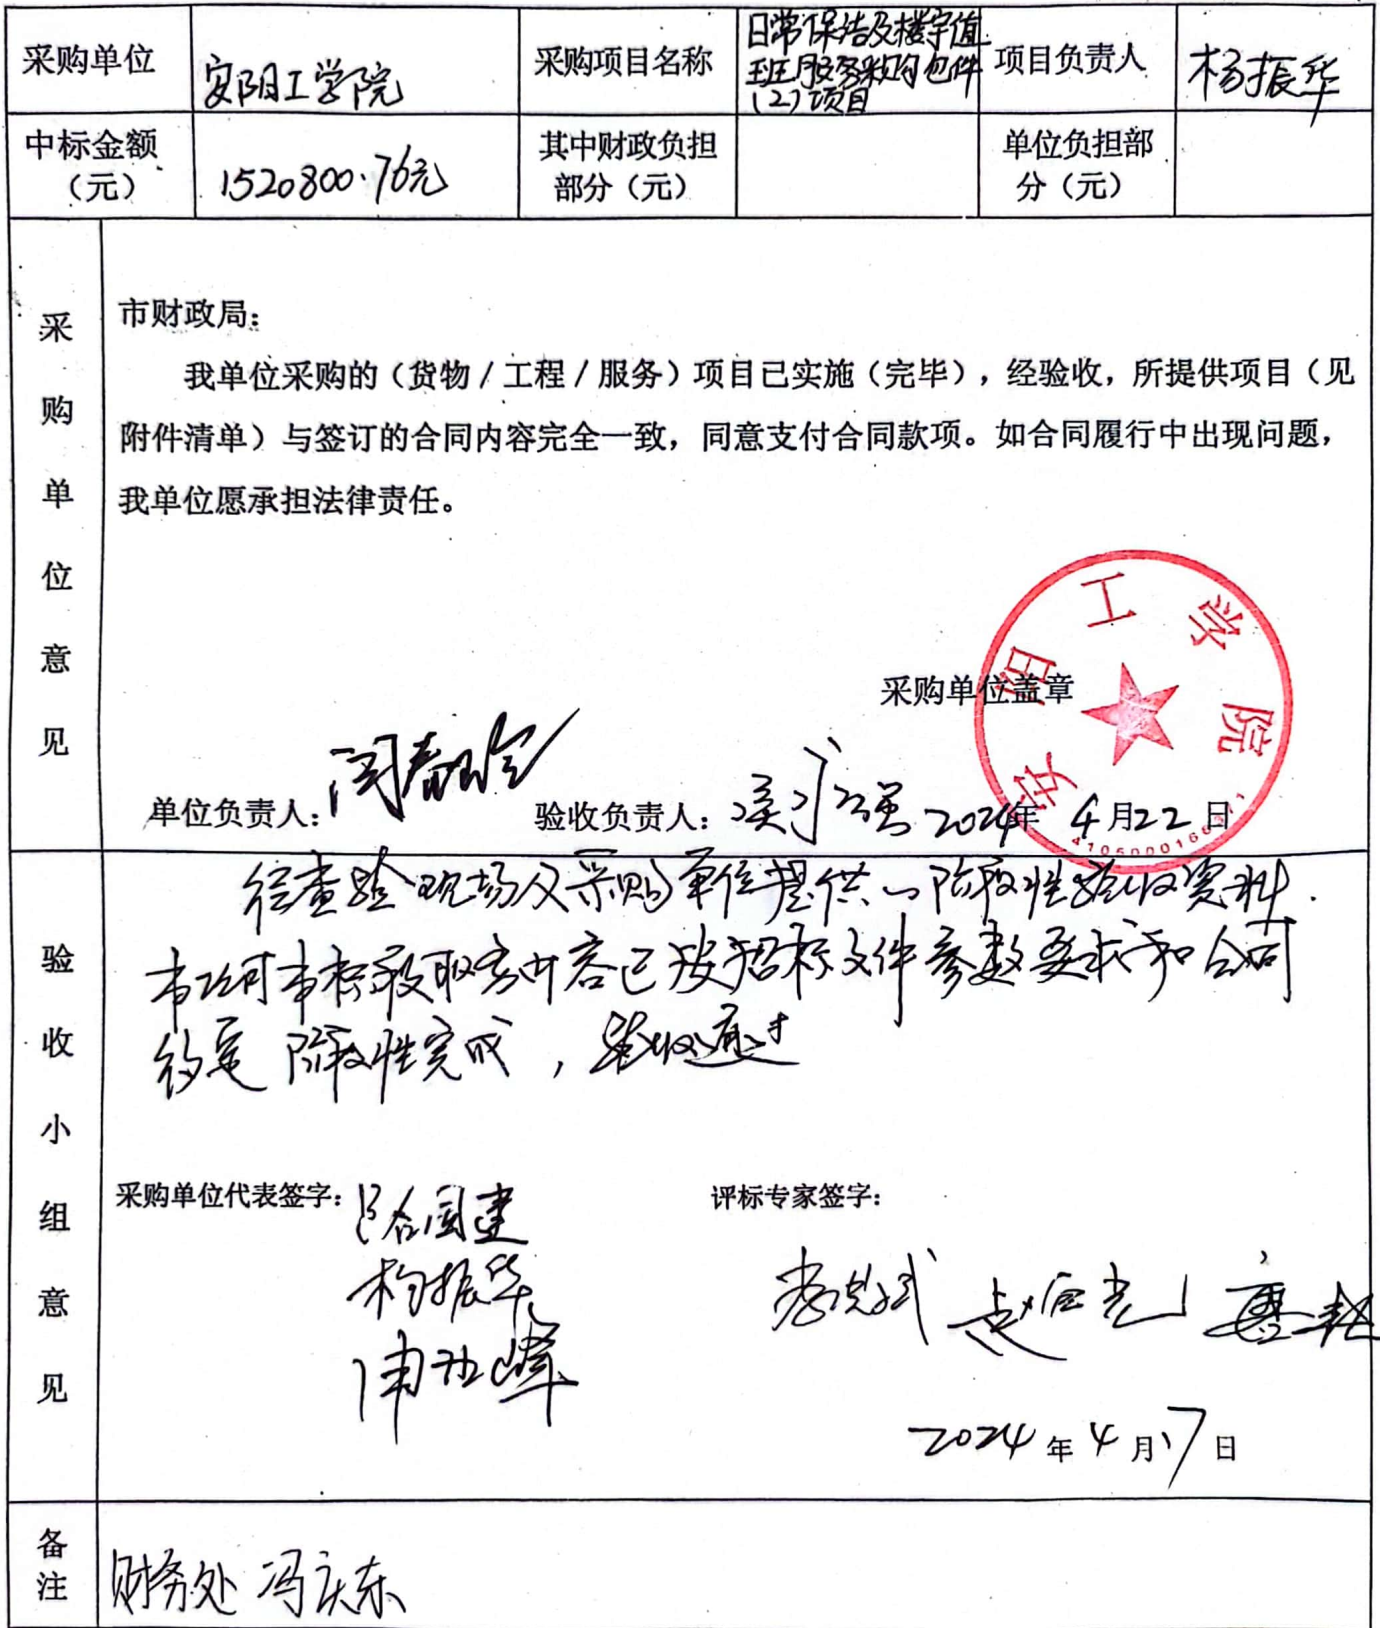 采购单位 安阳工学院 采购项目名称 日常保洁及楼宇值
班服务采购包件
(2)项目 项目负责人 杨振华
中标金额
（元） 1520800.76元 其中财政负担
部分（元） 单位负担部
分（元）
采购单位意见
市财政局：
我单位采购的（货物／工程／服务）项目已实施（完毕），经验收，所提供项目（见
附件清单）与签订的合同内容完全一致，同意支付合同款项。如合同履行中出现问题，
我单位愿承担法律责任。
采购单位盖章
安阳工学院
单位负责人： 验收负责人： 2024年 4月22日
验收小组意见
经查验现场及采购单位提供的阶段性验收资料.
本项目本标段服务内容已按招标文件参数要求和合同
约定阶段性完成，验收通过
采购单位代表签字： 评标专家签字：
杨振华
2024年4月17日
备注
财务处 冯庆东